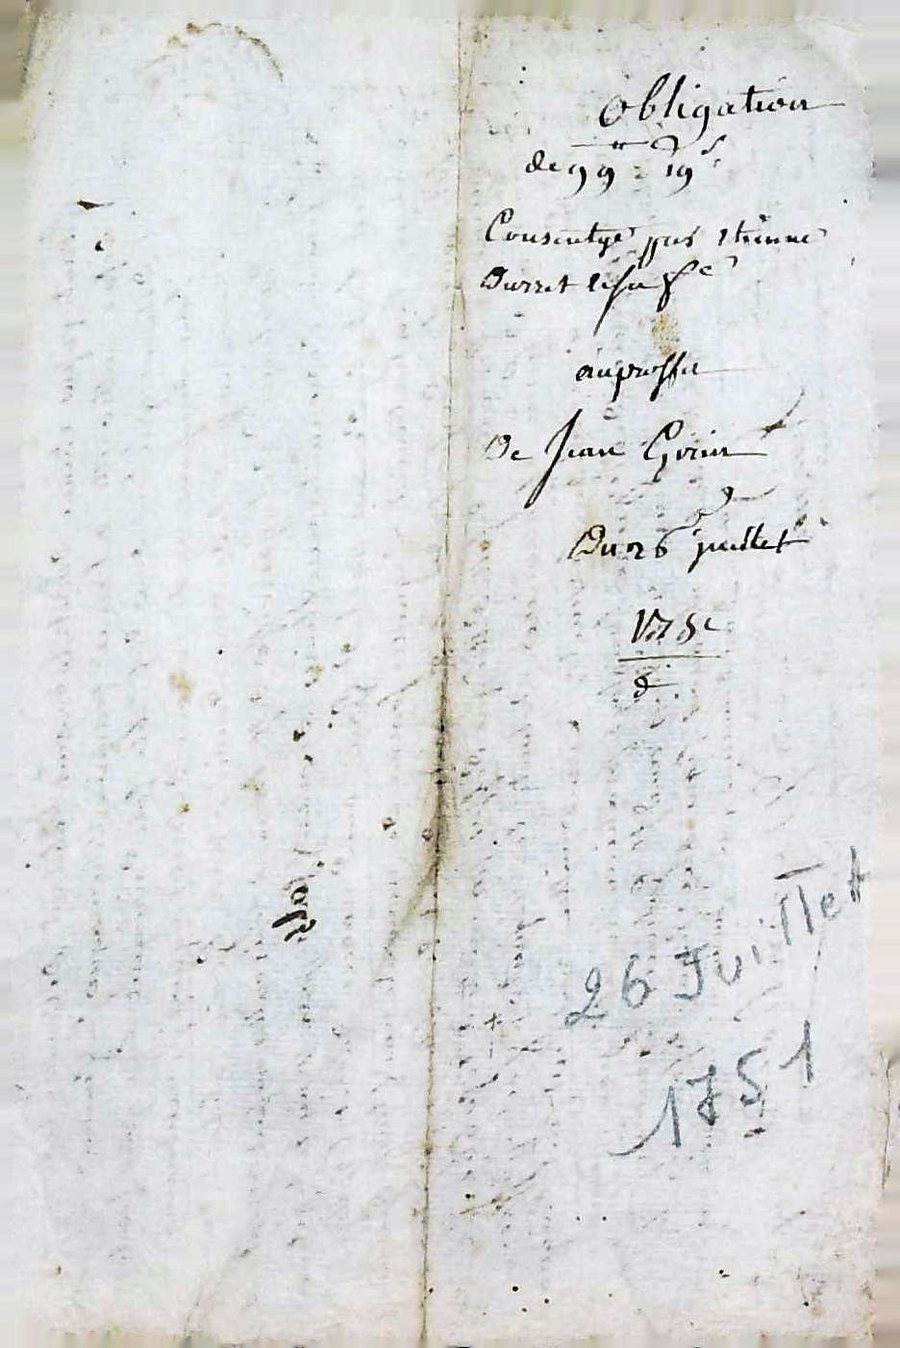 Obligation
de 99" 19s
Consentye par etienne
Durret
auproffit
De Jean Gorin
Du 26 juillet
1751
26 Juillet
1751